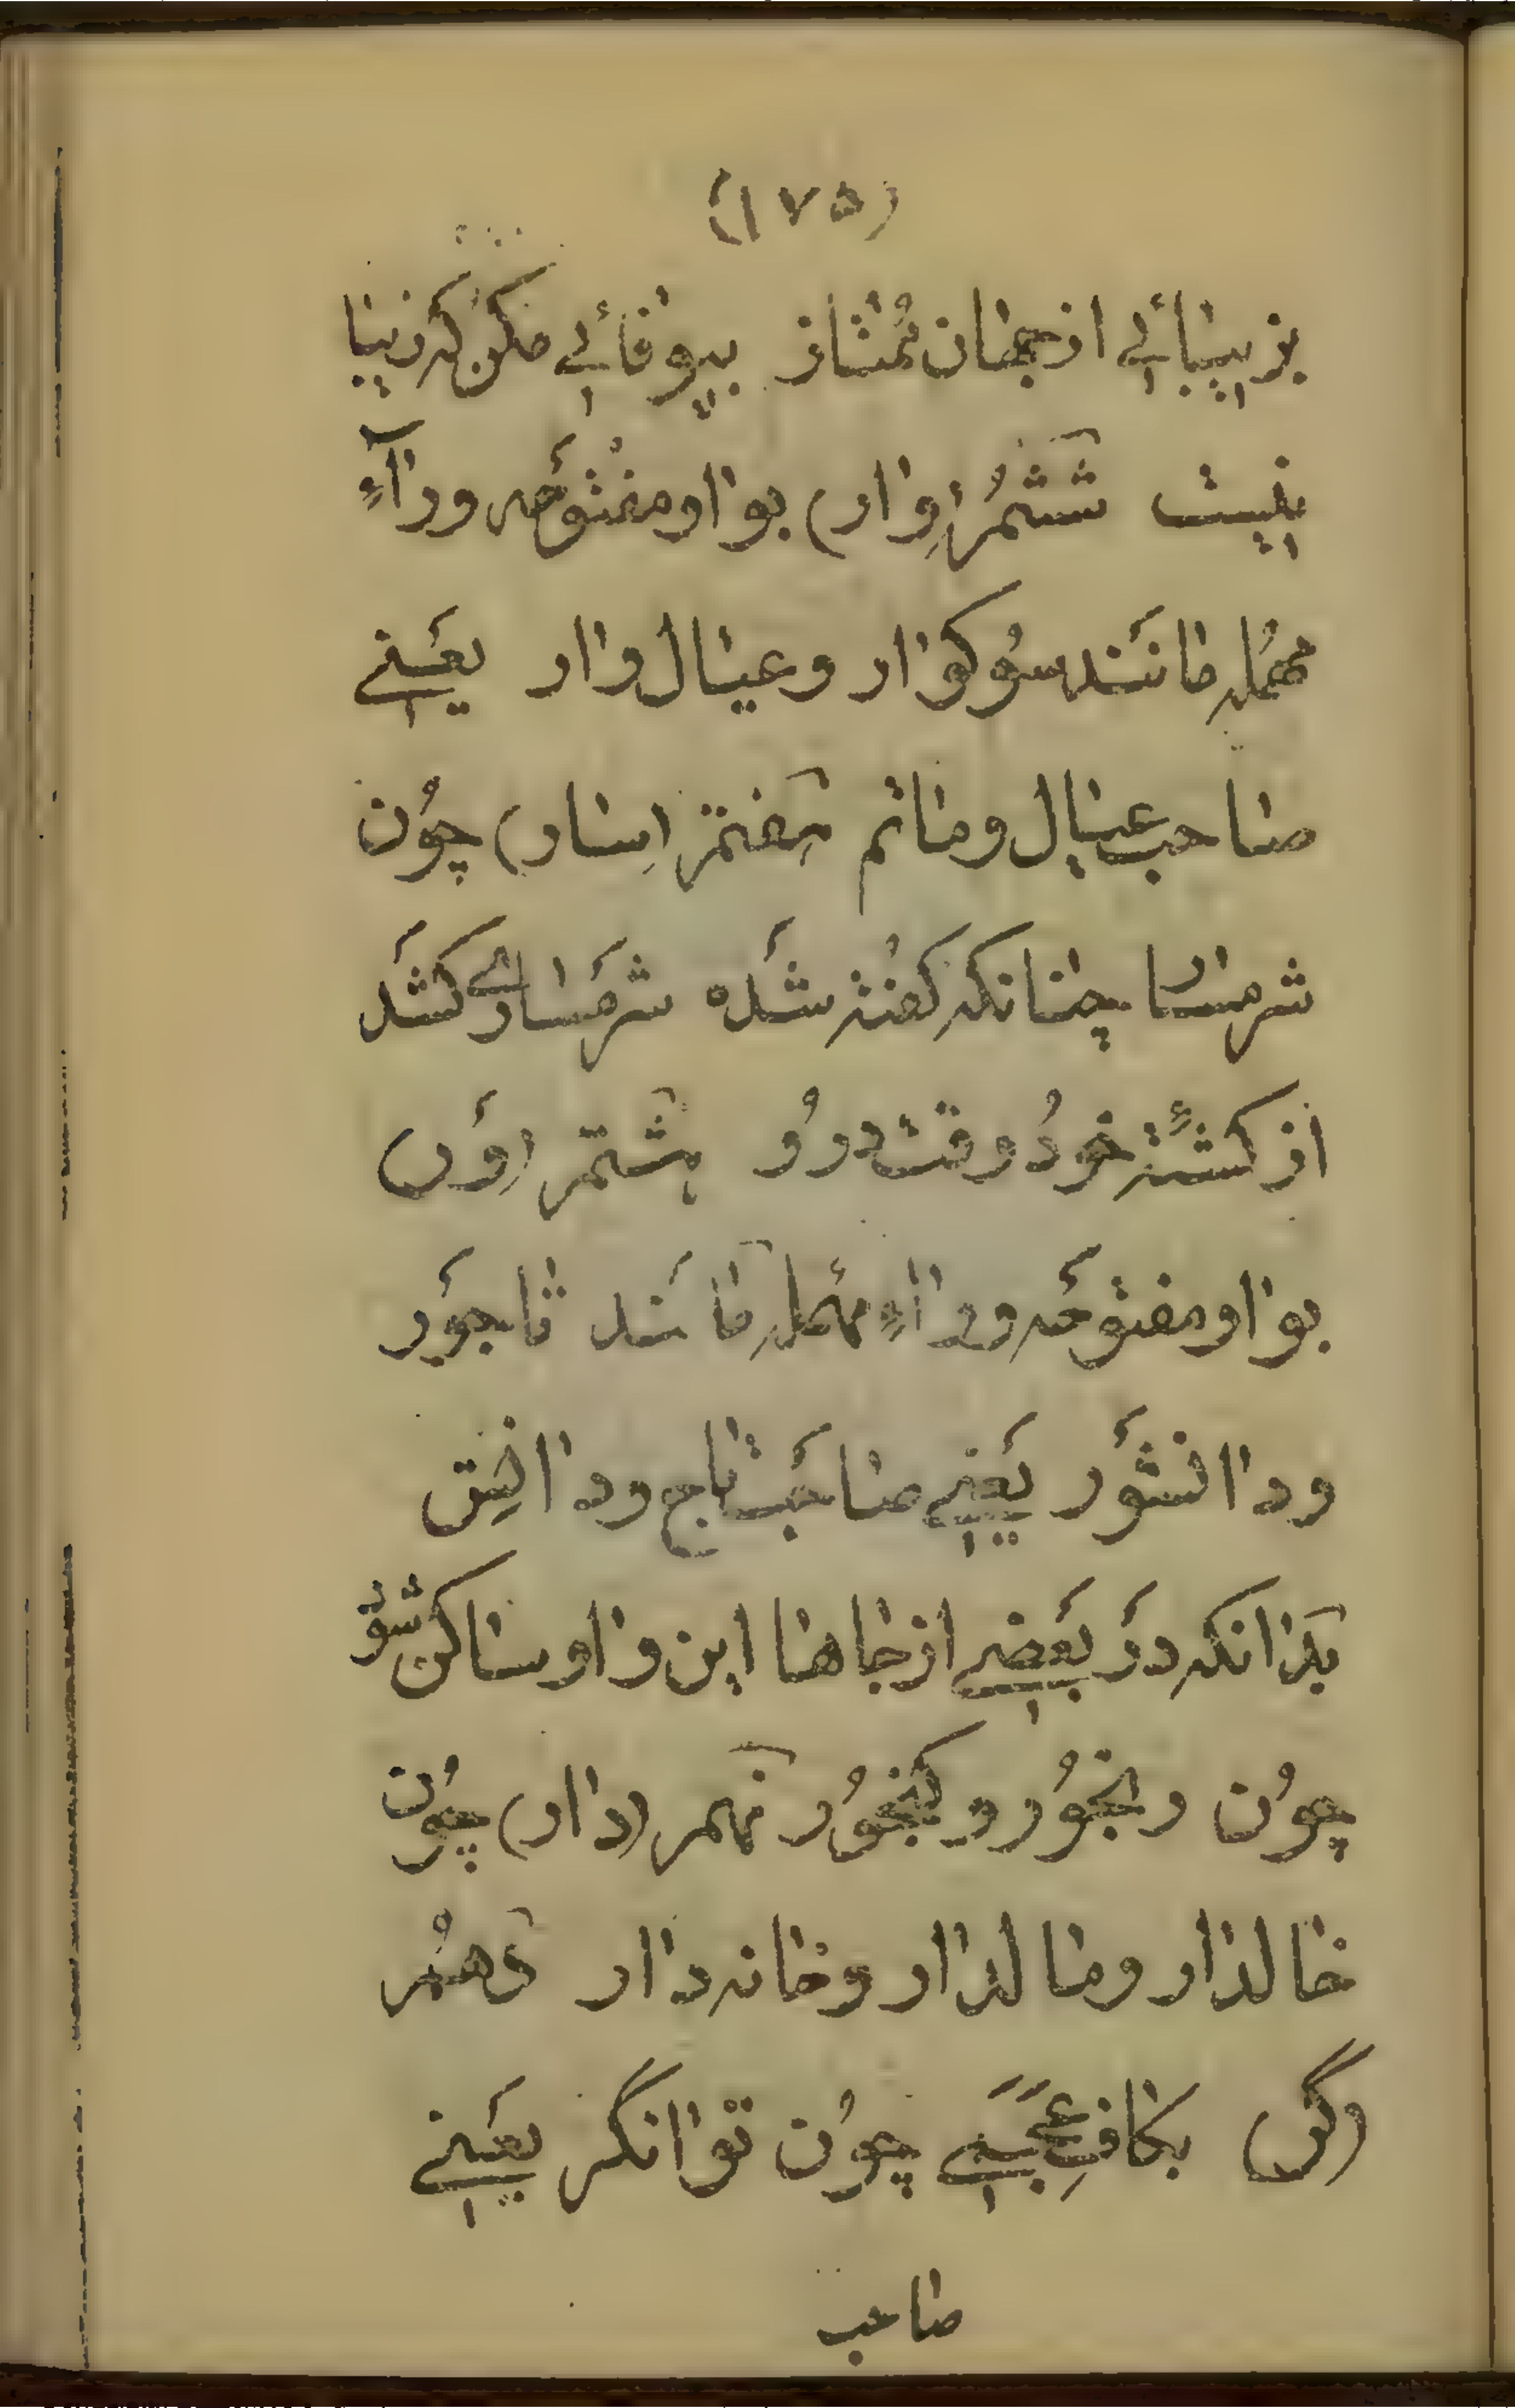 (١٧٥)
بزیبائے از جهان مُمتاز بیوفائے مکن که زیبا
نیست ششمُ (وار) بواو مفتوحَه وراءِ
مهُمله مانَند سوُکوار وعیال وار یعَنے
صاحب عیال وماتم هَفتم (سار) چوُن
شرمسار چنانکه کفُته شَده شرمَسارے کشَد
از کشتَۀ خودُ وقت درو هَشتم (وَر)
بواو مفتوحَه وراءِ مهمله مانَند تاجوَر
ودانشوَر یَعنے صاحَب تاج ودانِش
بَدانکه دَر بَعضے از جاها این واو ساکن شَوَد
چوُن رنجوُر و کنجوُر نهم (دار) چوُن
خالدار ومالدار وخانه دار دَهمُ
(گر) بکافِ عجَمے چوُن توانگر یعَنے
صاحب